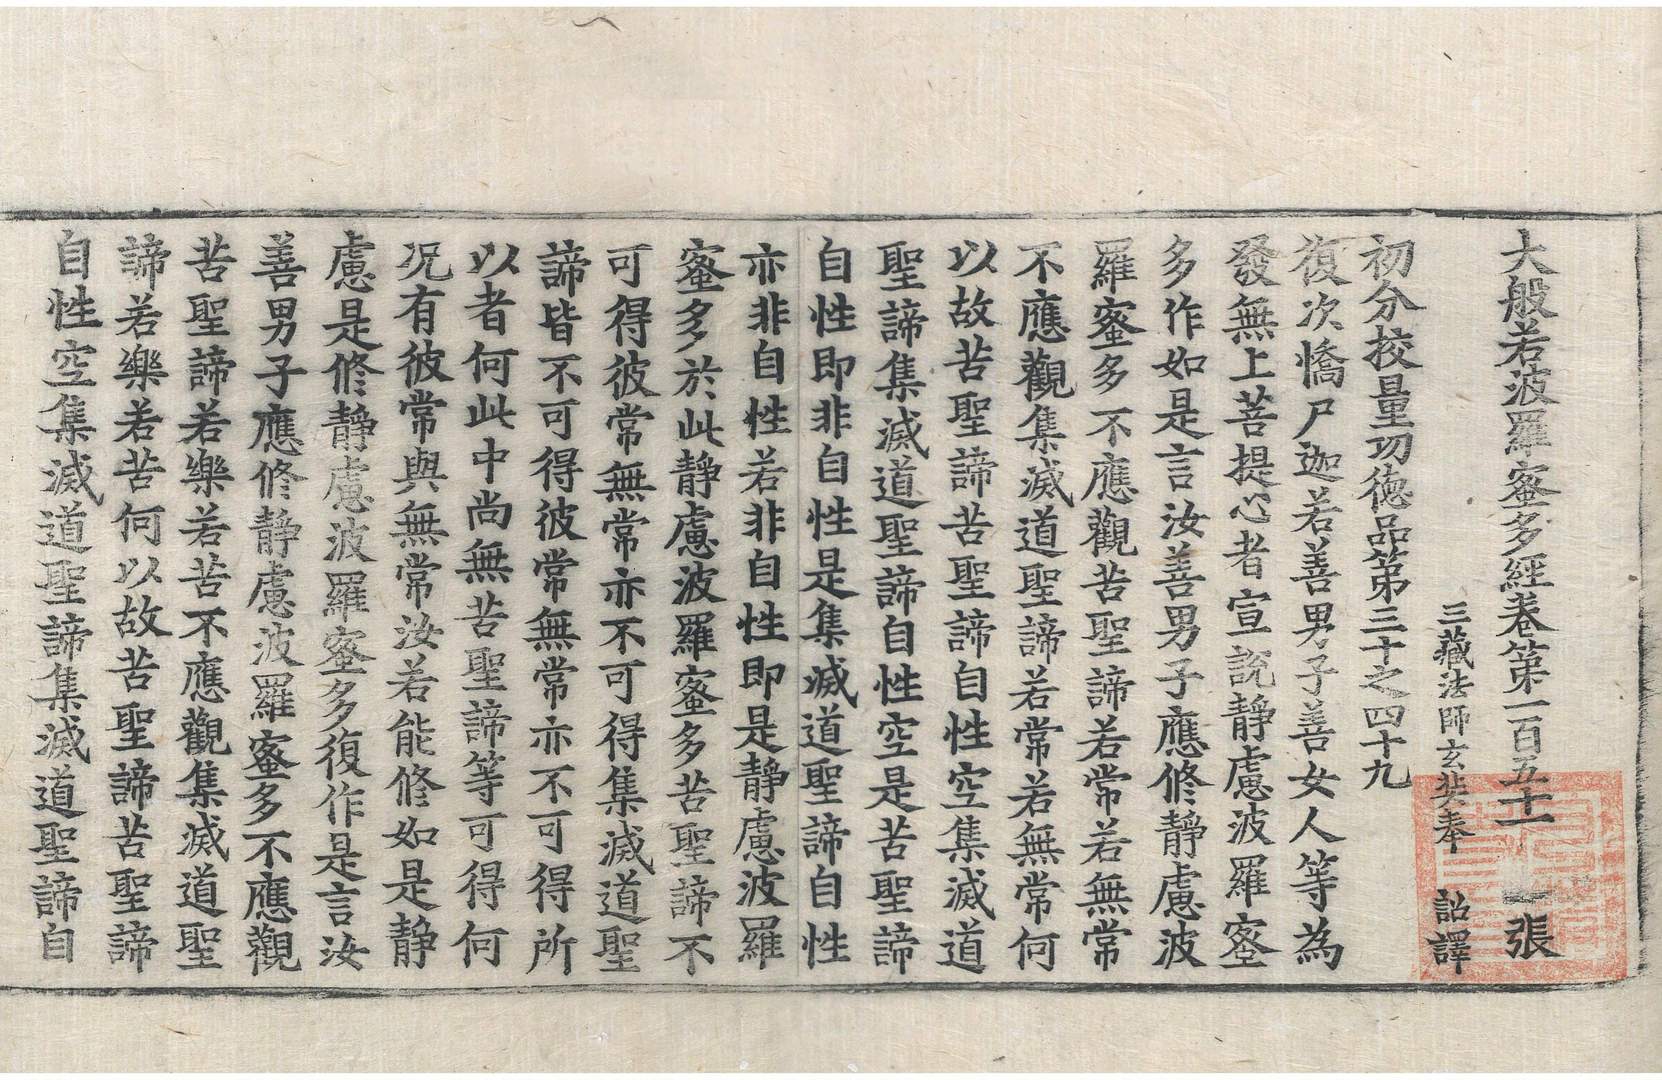 大般若波羅蜜多經卷第一百五十一 張
三藏法師玄奘奉 詔譯
初分挍量功德品第三十之四十九
復次憍尸迦若善男子善女人等為
發無上菩提心者宣說靜慮波羅蜜
多作如是言汝善男子應修靜慮波
羅蜜多不應觀苦聖諦若常若無常
不應觀集滅道聖諦若常若無常何
以故苦聖諦苦聖諦自性空集滅道
聖諦集滅道聖諦自性空是苦聖諦
自性即非自性是集滅道聖諦自性
亦非自性若非自性即是靜慮波羅
蜜多於此靜慮波羅蜜多苦聖諦不
可得彼常無常亦不可得集滅道聖
諦皆不可得彼常無常亦不可得所
以者何此中尚無苦聖諦等可得何
况有彼常與無常汝若能修如是靜
慮是修靜慮波羅蜜多復作是言汝
善男子應修靜慮波羅蜜多不應觀
苦聖諦若樂若苦不應觀集滅道聖
諦若樂若苦何以故苦聖諦苦聖諦
自性空集滅道聖諦集滅道聖諦自